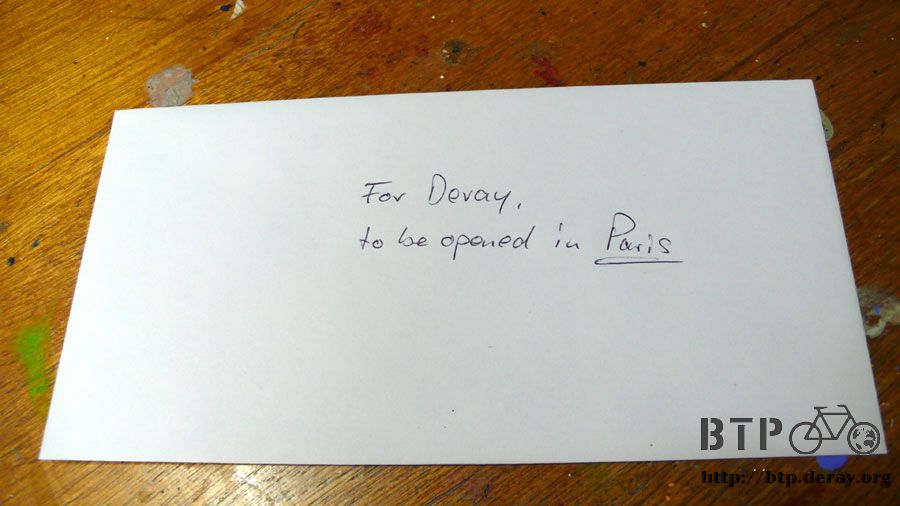 For Deray,
to be opened in Paris
BTP
http://btp.deray.org